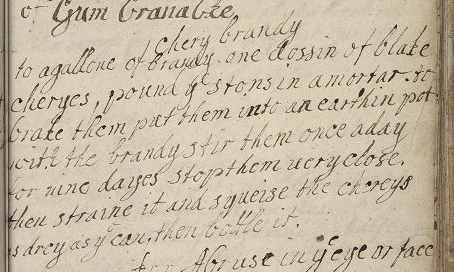 of Gum Granable
Chery brandy
to agallone of brandy. one dossin of blake
cheryes, pound yͤ stons in a mortar. to
brake them put them into an earthin pot
with the brandy stir them once aday
for nine dayes stop them uery close.
then straine it and squeise the chereys
as drey as yͤ can, then botle it.
for Abruse in yͤ eye or face